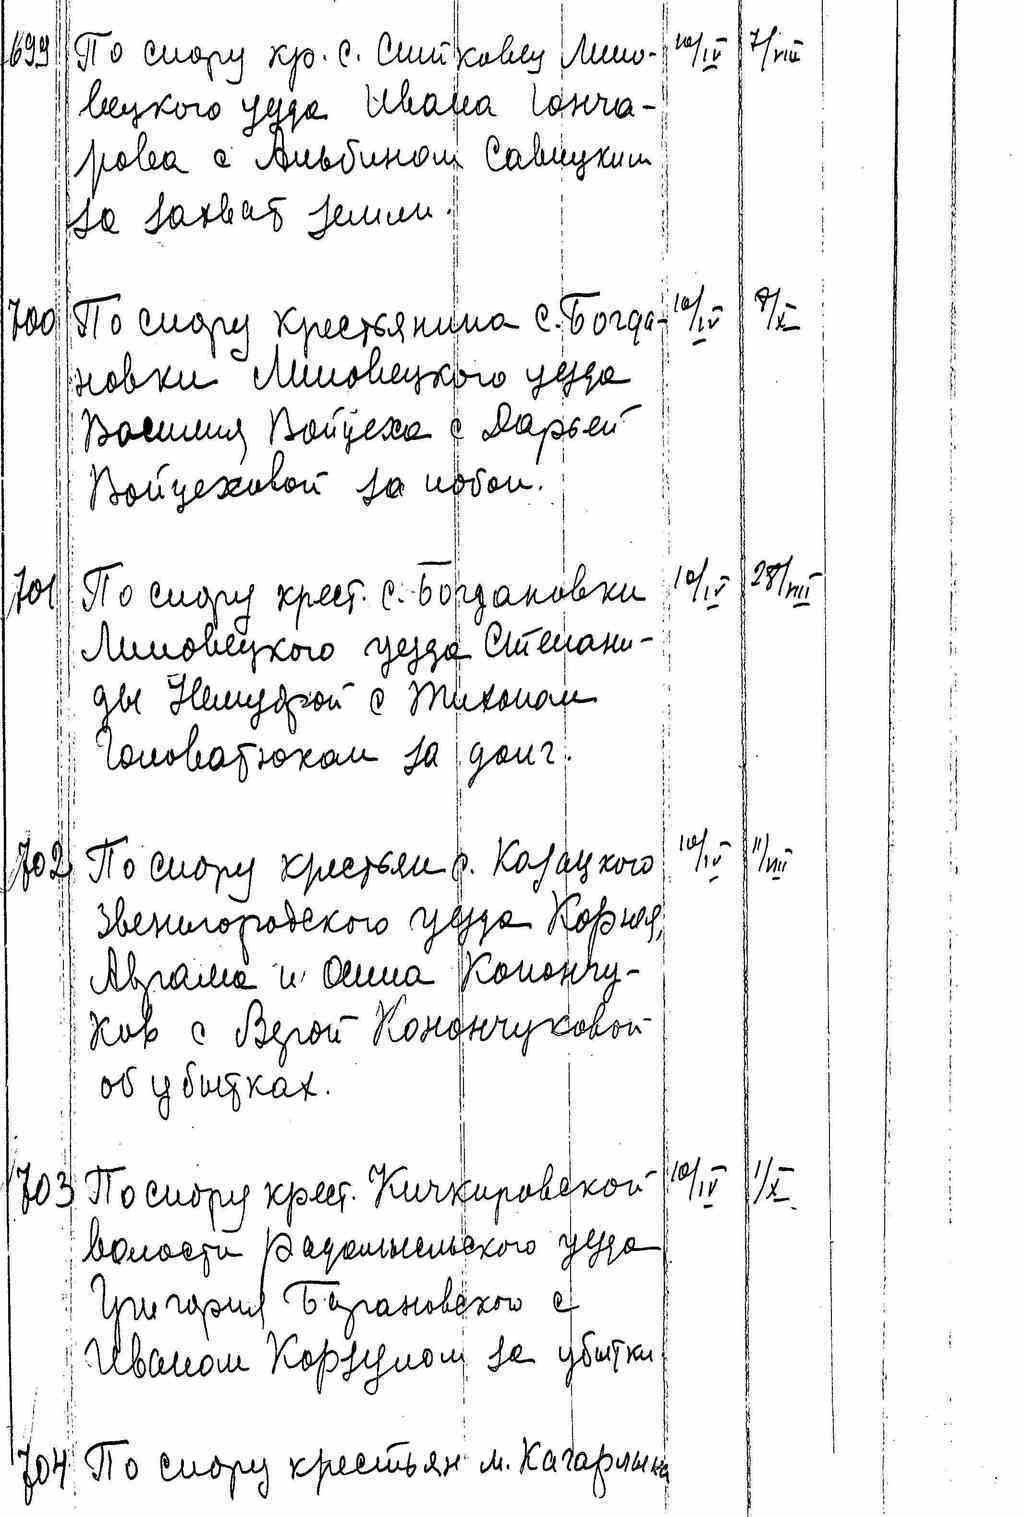 699 По спору кр. с. Ситковец Липо- 10/IV 7/VIII
вецкого уезда Ивана Гонча-
рова с Альбином Савицким
за захват земли.
700 По спору крестьянина с. Богда- 10/IV 8/X
новки Липовецкого уезда
Василия Войцеха с Дарьей
Войцеховой за побои.
701 По спору крест. с. Богдановки 10/IV 28/VIII
Липовецкого уезда Степани-
ды Немудрой с Тихоном
Головатюком за долг.
702 По спору крестьян с. Казацкого 10/IV 11/VIII
Звенигородского уезда Корнея,
Абрама и Осипа Конончу-
ков с Верой Конончуковой
об убытках.
703 По спору крест. Кичкировской 10/IV 1/X
волости Радомысльского уезда
Григория Барановского с
Иваном Корзуном за убытки
704 По спору крестьян м. Кагарлыка